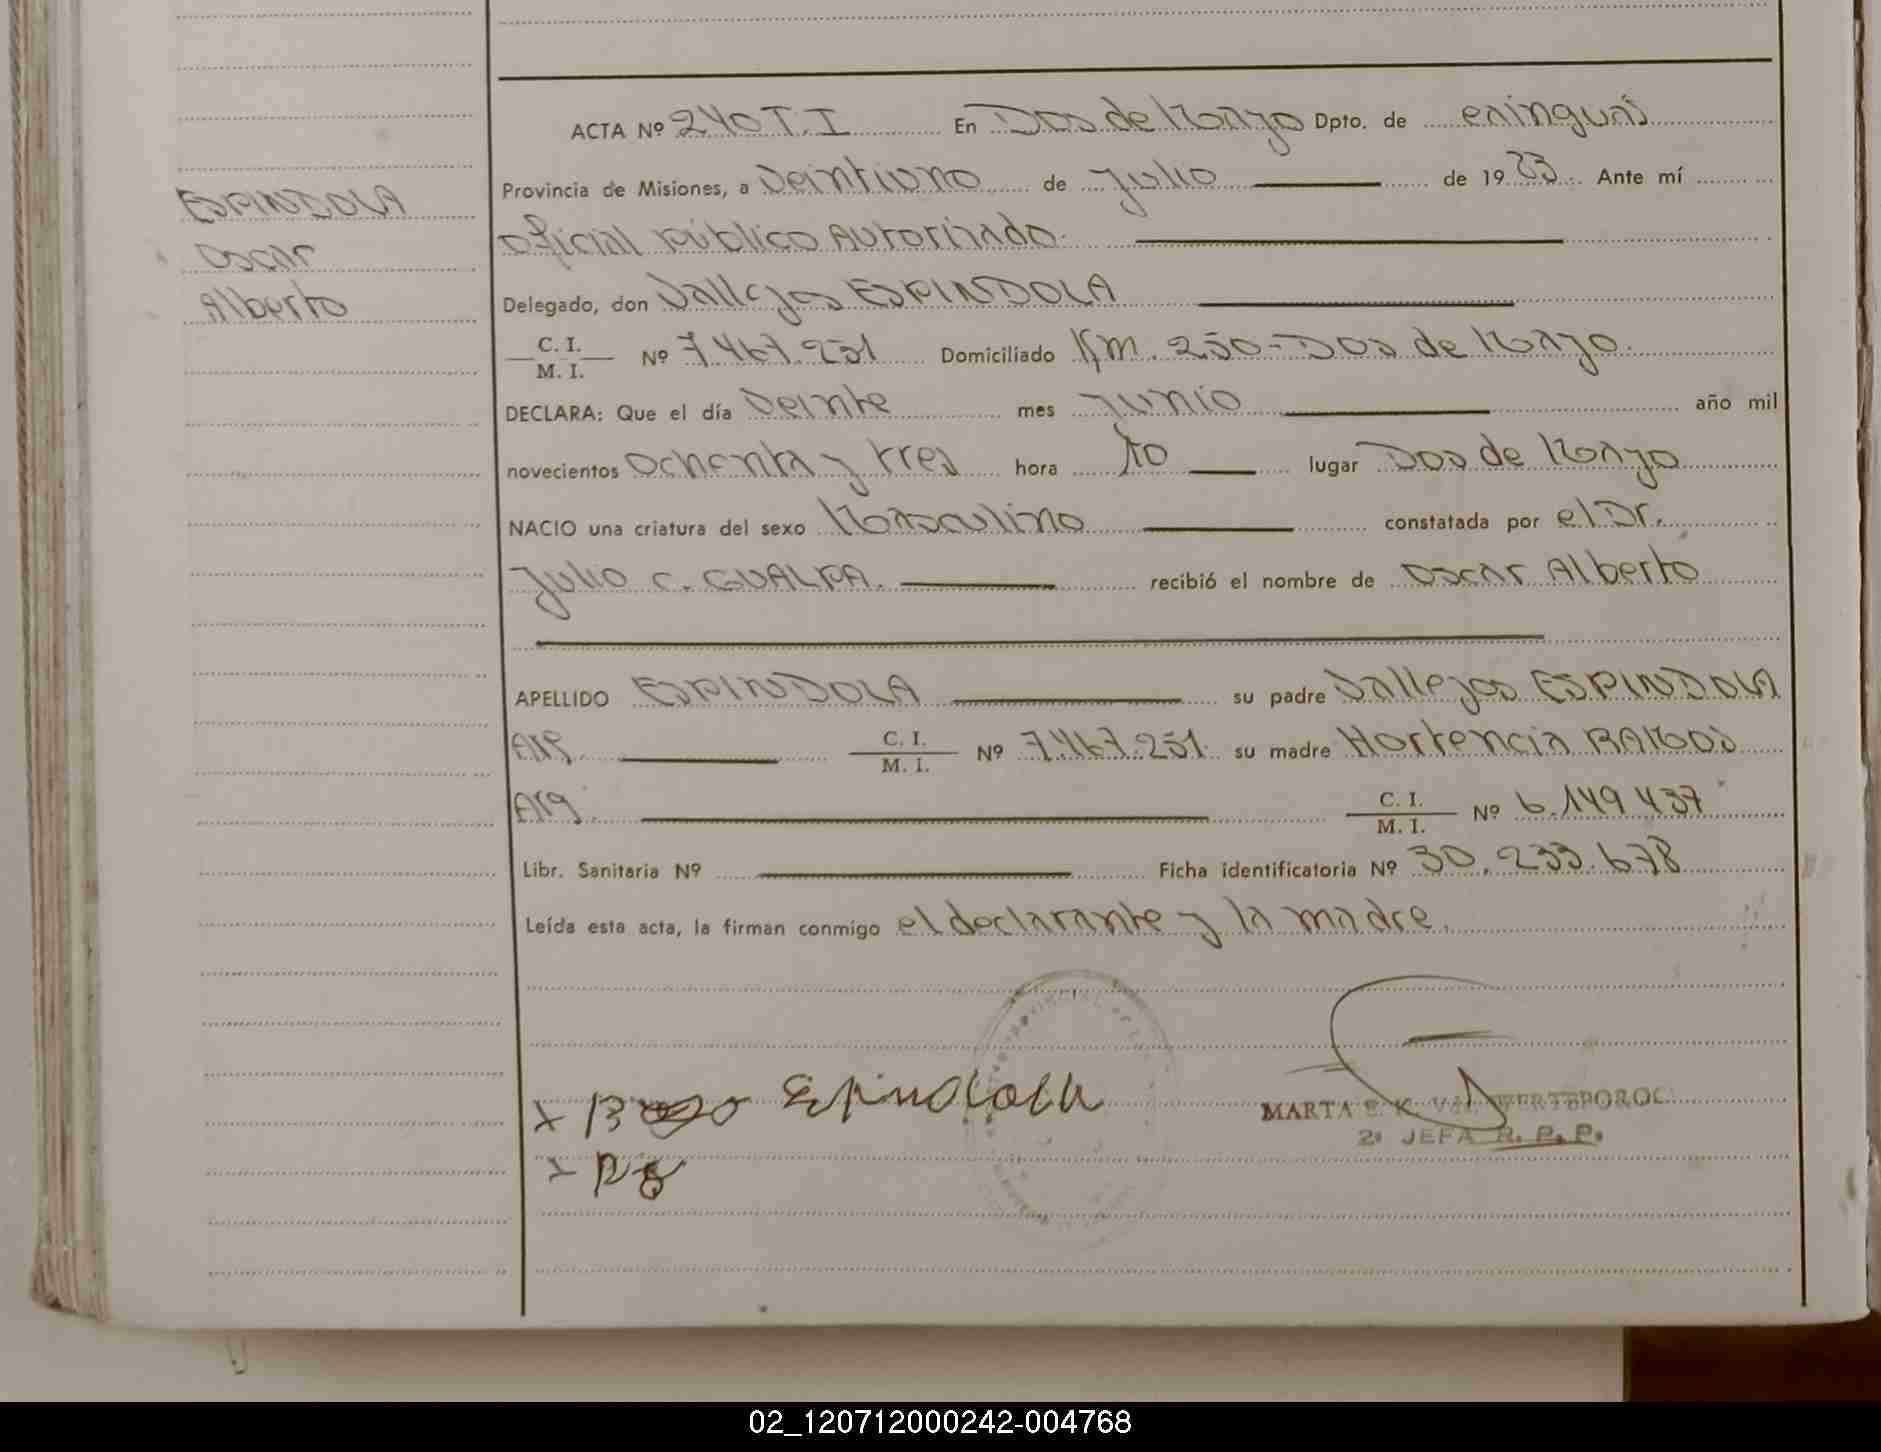 ACTA Nº 240 T. I En Dos de Marzo Dpto. de
Provincia de Misiones, a Veintiuno de Julio de 19 83. Ante mí
Oficial público Autorizado.
ESPINDOLA
Oscar
Alberto
Delegado, don Vallejos ESPINDOLA
C. I.
M. I. Nº 7.467.251 Domiciliado Km. 250 - Dos de Marzo.
DECLARA: Que el día Veinte mes Junio año mil
novecientos Ochenta y tres hora lugar Dos de Marzo
NACIO una criatura del sexo Masculino constatada por el Dr.
Julio C. GUALPA. recibió el nombre de Oscar Alberto
APELLIDO ESPINDOLA su padre Vallejos ESPINDOLA
Arg. C. I.
M. I. Nº 7.467.251. su madre Hortencia
Arg. C. I.
M. I. Nº 6.149.437
Libr. Sanitaria Nº Ficha identificatoria Nº 30.233.678
Leída esta acta, la firman conmigo el declarante y la madre.
Espindola
MARTA E. K. Vda.
2ª JEFA R. P. P.
02_120712000242-004768